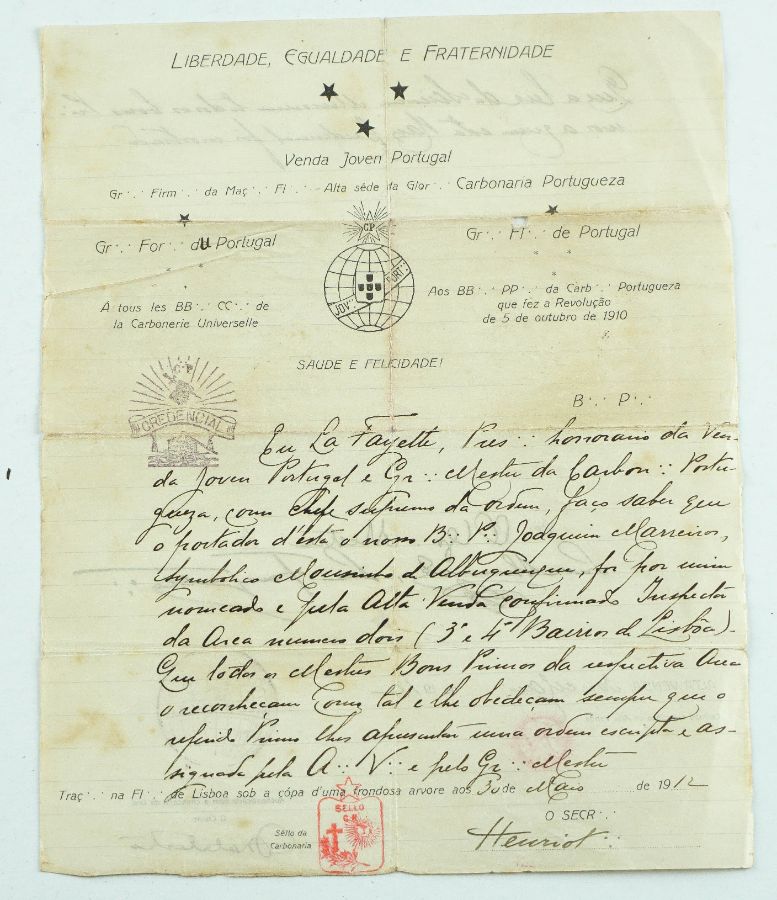 LIBERDADE, EGUALDADE E FRATERNIDADE
Venda Joven Portugal
Gr∴ Firm∴ da Maç∴ Fl∴ Alta séde da Glor∴ Carbonaria Portugueza
Gr∴ For∴ du Portugal
Gr∴ Fl∴ de Portugal
CP
JOV∴ PORT∴
Á tous les BB∴ CC∴ de
la Carbonerie Universelle
Aos BB∴ PP∴ da Carb∴ Portugueza
que fez a Revolução
de 5 de outubro de 1910
SAUDE E FELICIDADE!
C. P.
CREDENCIAL
B∴ P∴
Eu La Fayette, Pres∴ honorario da Ven-
da Joven Portugal e Gr∴ Mestre da Carbon∴ Portu-
gueza, como chefe supremo da ordem, faço saber que
o portador d'ésta o nosso B∴ P∴ Joaquim Marreiros,
symbolico Mousinho de Albuquerque, foi por mim
nomeado e pela Alta Venda confirmado Inspector
da Area numero dois (3º e 4º Bairros de Lisbôa).
Que todos os Mestres Bons Primos da respectiva Area
o reconheçam como tal e lhe obedeçam sempre que o
referido Primo lhes apresentar uma ordem escripta e as-
signada pela A∴ V∴ e pelo Gr∴ Mestre
Traç∴ na Fl∴ de Lisboa sob a cópa d'uma frondosa arvore aos 30 de Maio de 1912
O SECR∴
Sêllo da
Carbonaria
SELLO
Henriot∴